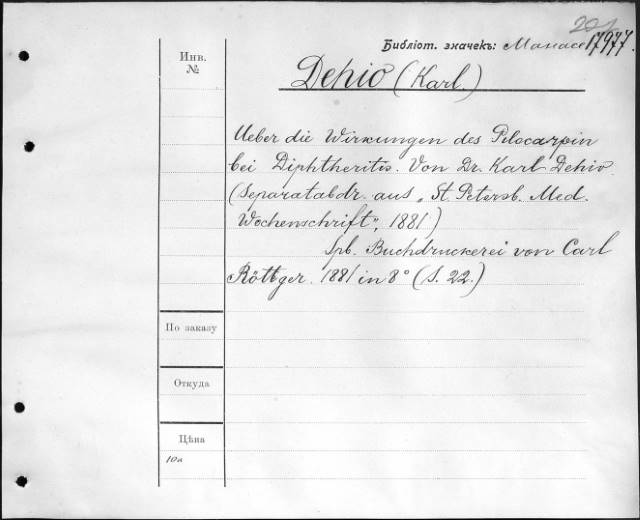 Библіот. значекъ: Манасе 17977.
Инв.
№
Dehio (Karl.)
Ueber die Wirkungen des Pilocarpin
bei Diphtheritis. Von Dr. Karl Dehio.
(Separatabdr. aus „St. Petersb. Med.
Wochenschrift", 1881)
Spb. Buchdruckerei von Carl
Röttger. 1881 in 8° (S. 22.)
По заказу
Откуда
Цѣна